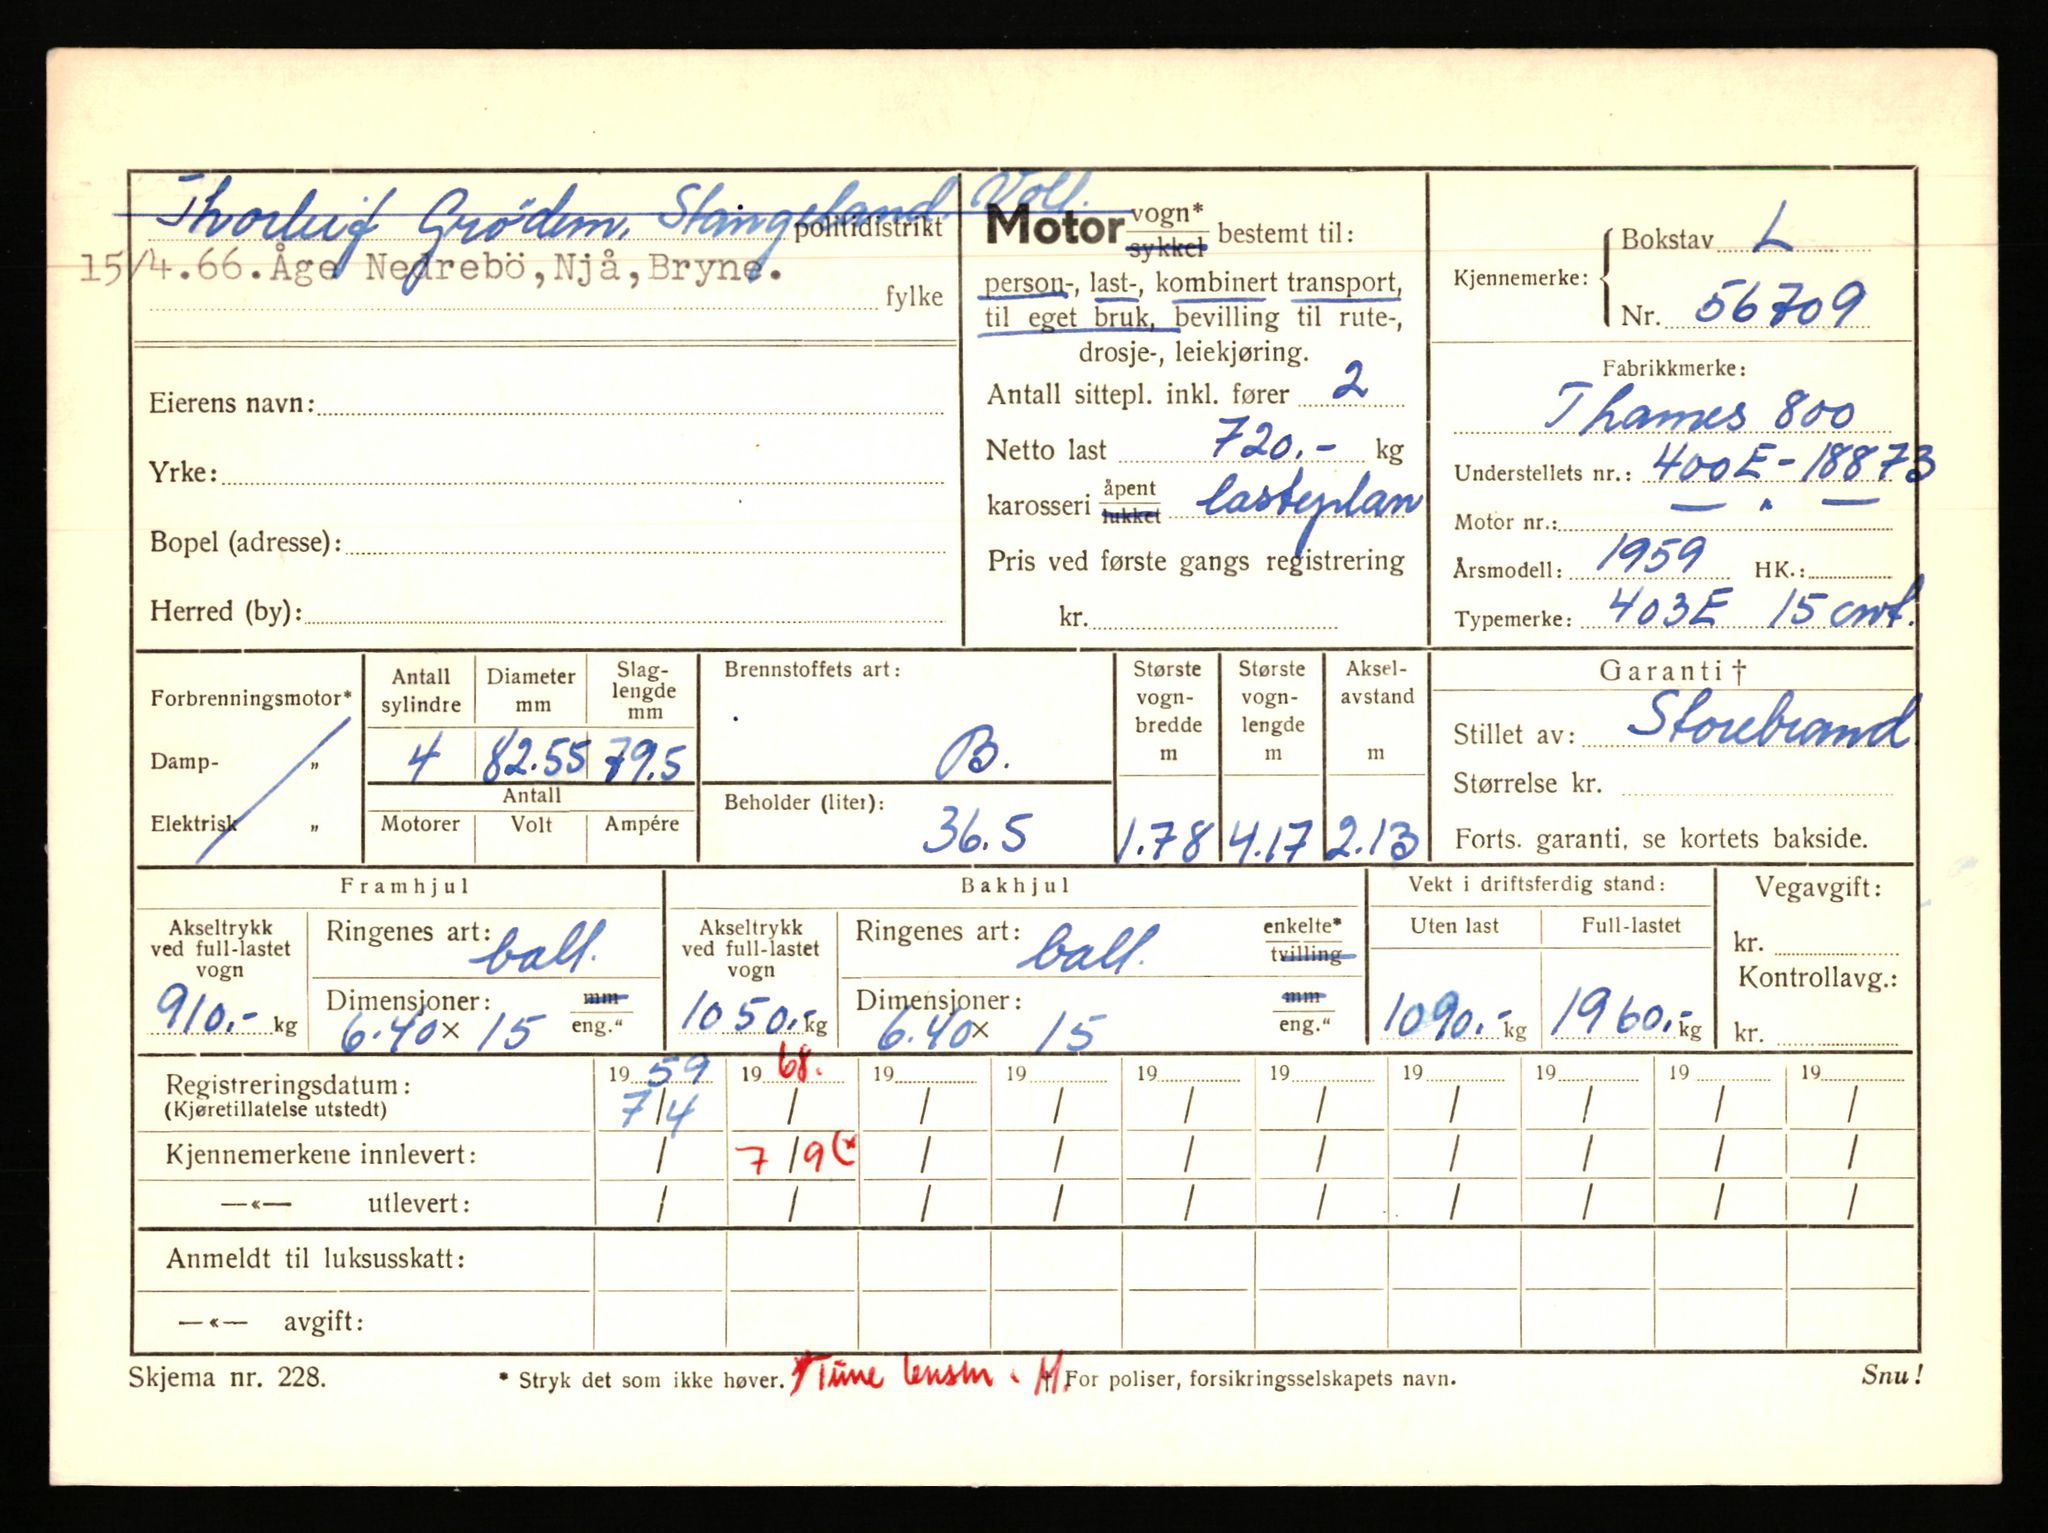 Thorleif Grödem, Stangeland Voll.
politidistrikt
15/4.66. Åge Nedrebö, Njå, Bryne.
fylke
Eierens navn:
Yrke:
Bopel (adresse):
Herred (by):
Motor vogn* sykkel bestemt til:
person-, last-, kombinert transport,
til eget bruk, bevilling til rute-,
drosje-, leiekjøring.
Antall sittepl. inkl. fører 2
Netto last 720.- kg
karosseri åpent lukket lasteplan
Pris ved første gangs registrering
kr.
Kjennemerke: Bokstav L
Nr. 56709
Fabrikkmerke:
Thames 800
Understellets nr.: 400E - 18873
Motor nr.: — " —
Årsmodell: 1959 HK.:
Typemerke: 403E 15 cwt.
Forbrenningsmotor*
Damp- „
Elektrisk „
Antall sylindre Diameter mm Slag-lengde mm
4 82.55 79.5
Antall
Motorer Volt Ampére
Brennstoffets art:
B.
Beholder (liter):
36.5
Største vogn-bredde m Største vogn-lengde m Aksel-avstand m
1.78 4.17 2.13
Garanti †
Stillet av: Storebrand
Størrelse kr.
Forts. garanti, se kortets bakside.
Framhjul
Akseltrykk ved full-lastet vogn
910.- kg
Ringenes art: ball.
Dimensjoner: mm eng."
6.40 x 15
Bakhjul
Akseltrykk ved full-lastet vogn
1050.- kg
Ringenes art: ball. enkelte* tvilling
Dimensjoner: mm eng."
6.40 x 15
Vekt i driftsferdig stand:
Uten last Full-lastet
1090.- kg 1960.- kg
Vegavgift:
kr.
Kontrollavg.:
kr.
Registreringsdatum: 1959 1968. 19 19 19 19 19 19 19 19
(Kjøretillatelse utstedt) 7/4 / / / / / / / / /
Kjennemerkene innlevert: / 7/9 (* / / / / / / / /
—«— utlevert: / / / / / / / / / /
Anmeldt til luksusskatt:
—«— avgift:
Skjema nr. 228. * Stryk det som ikke høver. † For poliser, forsikringsselskapets navn. Snu!